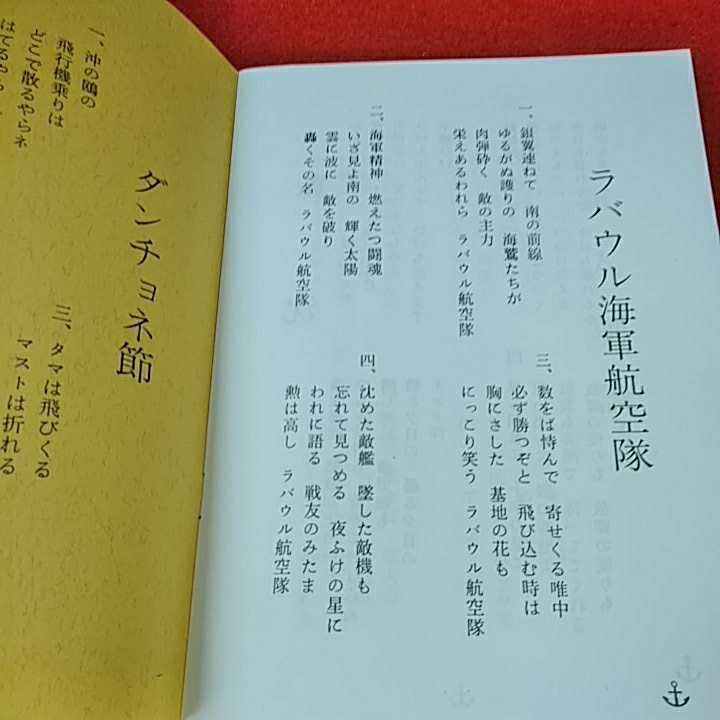 ラバウル海軍航空隊
一、銀翼連ねて 南の前線
ゆるがぬ護りの 海鷲たちが
肉弾砕く 敵の主力
栄えあるわれら ラバウル航空隊
二、海軍精神 燃えたつ闘魂
いざ見よ南の 輝く太陽
雲に波に 敵を破り
轟くその名 ラバウル航空隊
三、数をば恃んで 寄せくる唯中
必ず勝つぞと 飛び込む時は
胸にさした 基地の花も
にっこり笑う ラバウル航空隊
四、沈めた敵艦 墜した敵機も
忘れて見つめる 夜ふけの星に
われに語る 戦友のみたま
勲は高し ラバウル航空隊
ダンチョネ節
一、沖の鴎の
飛行機乗りは
どこで散るやらネ
はてるやら
三、タマは飛びくる
マストは折れる